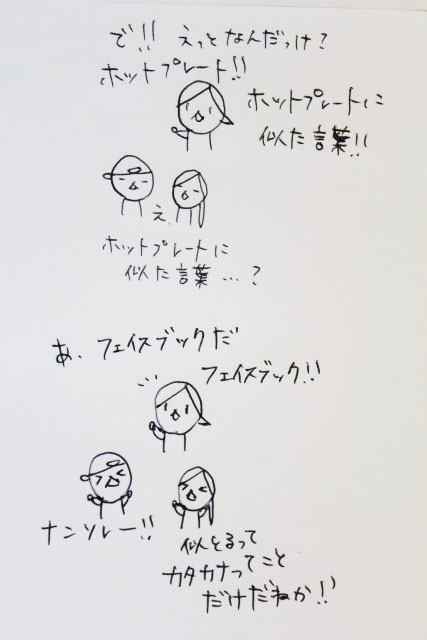 で!! えっとなんだっけ?
ホットプレート!!
ホットプレートに
似た言葉!!
え
ホットプレートに
似た言葉…?
あ、フェイスブックだ
フェイスブック!!
ナンソレー!!
似とるって
カタカナってこと
だけだねか!!